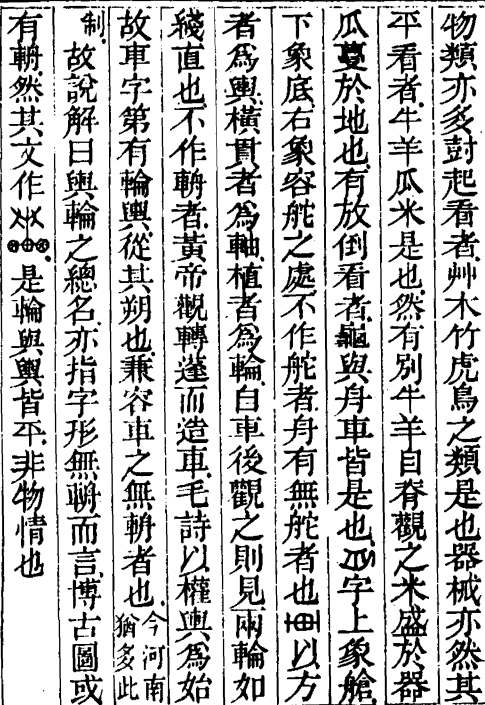 物類亦多豎起看者艸木竹虎鳥之類是也器械亦然其
平看者牛羊瓜米是也然有別牛羊自脊觀之米盛於器
瓜蔓於地也有放倒看者龜與舟車皆是也字上象艙
下象底右象容舵之處不作舵者舟有無舵者也以方
者為輿橫貫者為軸植者為輪自車後觀之則見兩輪如
綫直也不作輈者黃帝觀轉蓬而造車毛詩以權輿為始
故車字第有輪輿從其朔也兼容車之無輈者也今河南猶多此
制故說解曰輿輪之總名亦指字形無輈而言博古圖或
有輈然其文作是輪與輿皆平非物情也